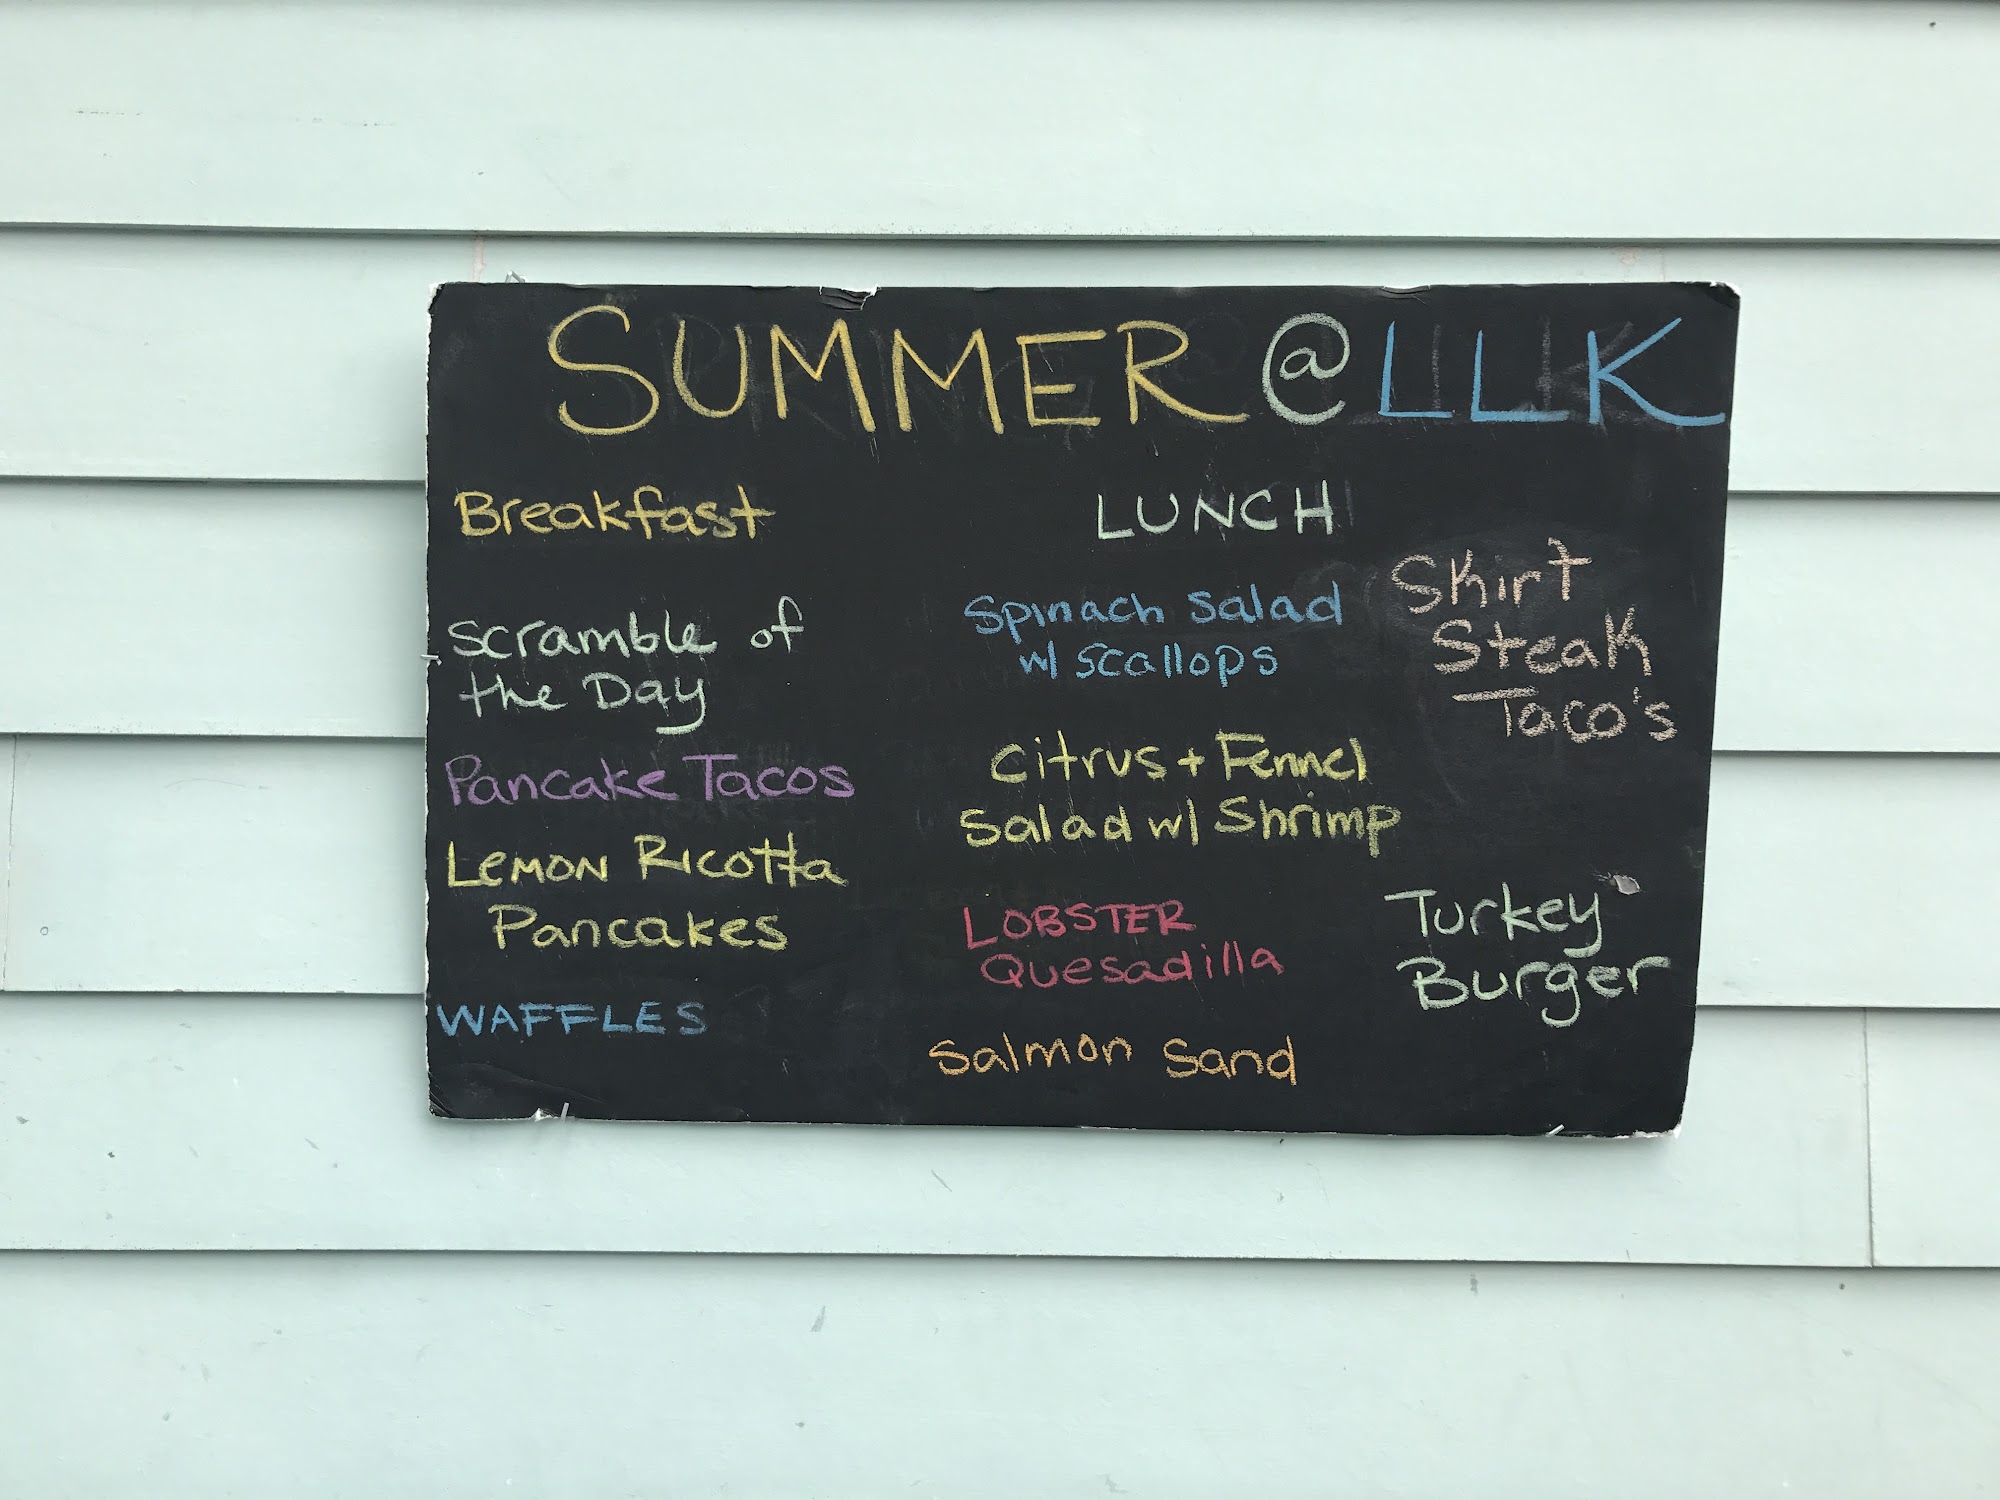 SUMMER @ LLK
Breakfast
Scramble of
the Day
Pancake Tacos
LEMON RICOTTA
Pancakes
WAFFLES
LUNCH
Spinach Salad
w/ Scallops
Citrus + Fennel
Salad w/ Shrimp
LOBSTER
Quesadilla
Salmon Sand
Skirt
Steak
Taco's
Turkey
Burger